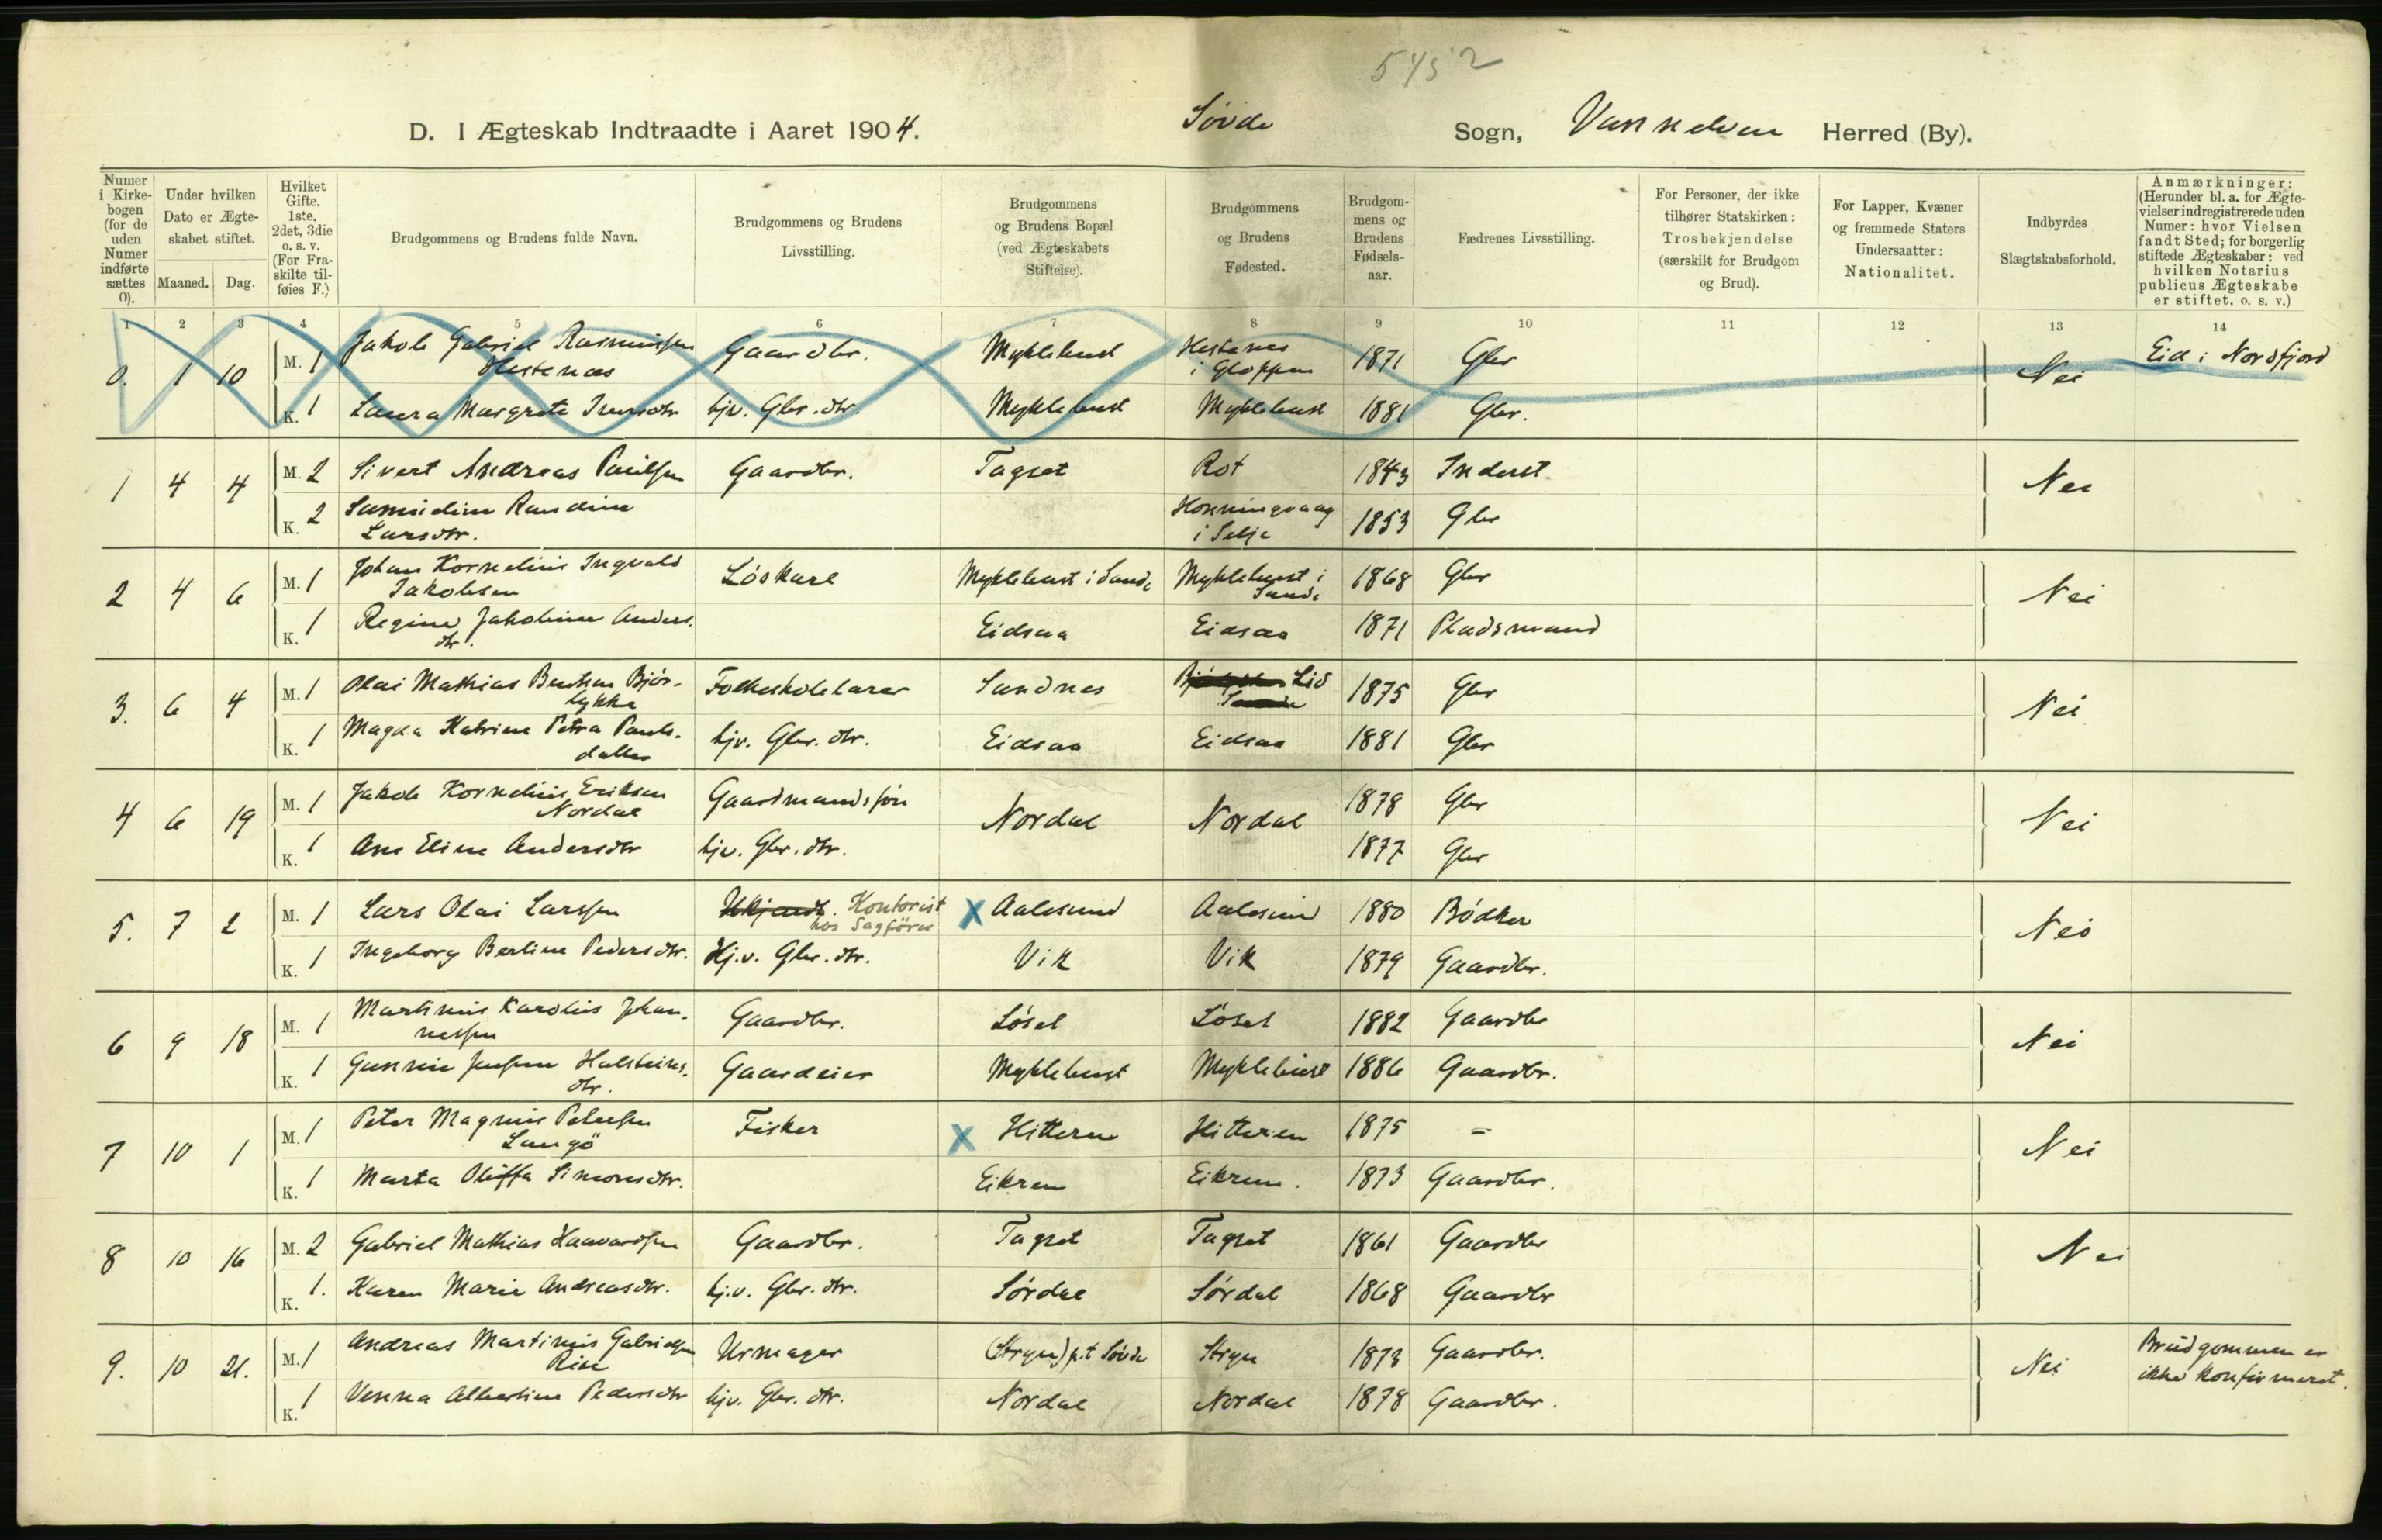 5452
D. I Ægteskab Indtraadte i Aaret 1904. Søvde Sogn, Vannelven Herred (By).
Numer i Kirkebogen (for de uden Numer indførte sættes 0).
Under hvilken Dato er Ægteskabet stiftet.
Maaned. Dag.
Hvilket Gifte. 1ste, 2det, 3die o. s. v. (For Fraskilte tilføies F.)
Brudgommens og Brudens fulde Navn.
Brudgommens og Brudens Livsstilling.
Brudgommens og Brudens Bopæl (ved Ægteskabets Stiftelse).
Brudgommens og Brudens Fødested.
Brudgommens og Brudens Fødselsaar.
Fædrenes Livsstilling.
For Personer, der ikke tilhører Statskirken: Trosbekjendelse (særskilt for Brudgom og Brud).
For Lapper, Kvæner og fremmede Staters Undersaatter: Nationalitet.
Indbyrdes Slægtskabsforhold.
Anmærkninger: (Herunder bl. a. for Ægtevielser indregistrerede uden Numer: hvor Vielsen fandt Sted; for borgerlig stiftede Ægteskaber: ved hvilken Notarius publicus Ægteskabe er stiftet, o. s. v.)
1 2 3 4 5 6 7 8 9 10 11 12 13 14
0. 1 10 M. 1 Jakob Gabriel Rasmussen Hestenæs Gaardbr. Myklebust Hestenes i Gloppen 1871 Gbr Nei Eid i Nordfjord
K. 1 Laura Margrete Iversdtr hjv. Gbr. dtr. Myklebust Myklebust 1881 Gbr.
1 4 4 M. 2 Sivert Andreas Paulsen Gaardbr. Tagset Rot 1843 Inderst Nei
K. 2 Samueline Randine Larsdtr. Honningvaag i Selje 1853 Gbr
2 4 6 M. 1 Johan Kornelius Ingvald Jakobsen Løskarl Myklebust i Sande Myklebust i Sande 1868 Gbr Nei
K. 1 Regine Jakobine Andersdtr. Eidsaa Eidsaa 1871 Pladsmand
3. 6 4 M. 1 Olai Mathias Bentsen Bjørlykke Folkeskolelærer Sandnes Lid 1875 Gbr Nei
K. 1 Magda Katrine Petra Paulsdatter hjv. Gbr. dtr. Eidsaa Eidsaa 1881 Gbr
4 6 19 M. 1 Jakob Kornelius Eriksen Nordal Gaardmandssøn Nordal Nordal 1878 Gbr Nei
K. 1 Ane Eline Andersdtr hjv. Gbr. dtr. 1877 Gbr
5. 7 2 M. 1 Lars Olai Larssen Ukjendt. Kontorist hos Sagfører X Aalesund Aalesund 1880 Bødker Nei
K. 1 Ingeborg Berline Pedersdtr. Hj.v. Gbr. dtr. Vik Vik 1879 Gaardbr.
6 9 18 M. 1 Martinus Karolus Johannessen Gaardbr. Løset Løset 1882 Gaardbr Nei
K. 1 Gunnie Jensine Halsteinsdtr. Gaardeier Myklebust Myklebust 1886 Gaardbr.
7 10 1 M. 1 Peter Magnus Petersen Langö Fisker X Hitteren Hitteren 1875 = Nei
K. 1 Marta Oliffa Simonsdtr. Eikrem Eikrem. 1873 Gaardbr.
8 10 16 M. 2 Gabriel Mathias Haavardsen Gaardbr. Tagset Tagset 1861 Gaardbr Nei
K. 1. Karen Marie Andreasdtr. hj.v. Gbr. dtr. Sørdal Sørdal 1868 Gaardbr
9. 10 21. M. 1 Andreas Martinus Gabrielsen Rise Urmager (Stryn) p.t Søvde Stryn 1873 Gaardbr. Nei Brudgommen er ikke konfirmeret.
K. 1 Venna Albertine Pedersdtr hjv. Gbr. dtr. Nordal Nordal 1878 Gaardbr.